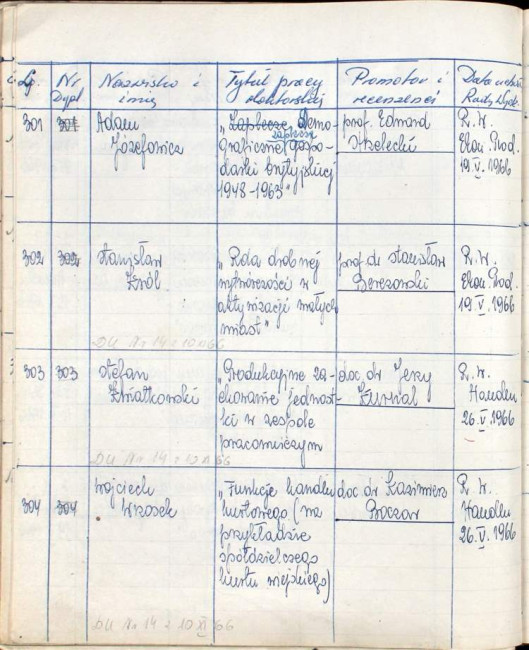 Lp.
Nr
Dypl
Nazwisko i
imię
Tytuł pracy
doktorskiej
Promotor i
recenzenci
Data uchw.
Rady Wydz.
301
301
Adam
Józefowicz
„Zaplecze Demo-
zaplecze
graficzne gospo-
darki brytyjskiej
1948-1963"
prof. Edmard
Strzelecki
R.W.
Ekon. Prod.
19.V.1966
302
302
Stanisław
Król
„Rola drobnej
wytwórczości w
aktywizacji małych
miast"
prof dr Stanisław
Berezowski
R.W.
Ekon. Prod.
19.V.1966
DU Nr 14 z 10 66
303
303
Stefan
Kwiatkowski
„Produkcyjne za-
chowanie jednost-
ki w zespole
pracowniczym
doc dr Jerzy
Kurnal
R.W.
Handlu
26.V.1966
DU Nr 14 z 10 XI 66
304
304
Wojciech
Wrzosek
„Funkcje handlu
hurtowego (na
przykładzie
spółdzielczego
hurtu wiejskiego)
doc dr Kazimierz
Boczar
R.W.
Handlu
26.V.1966
DU Nr 14 z 10 XI 66